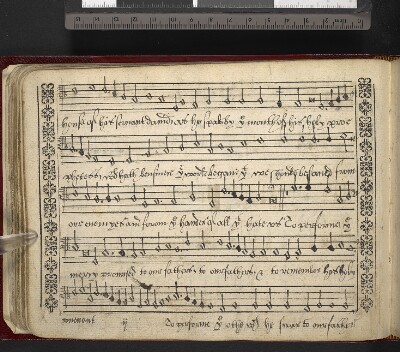 house of his servant david as he spake by yͤ mouth of his holy prop
phetes which hath ben sence yͤ world began yͭ we should be saved from
our enemyes and from yͤ handes of all yͭ hate us To performe yͤ
mercy promised to our fathers to our fathers & to remember his holy
ij To performe yͤ othe wch he sware to our father